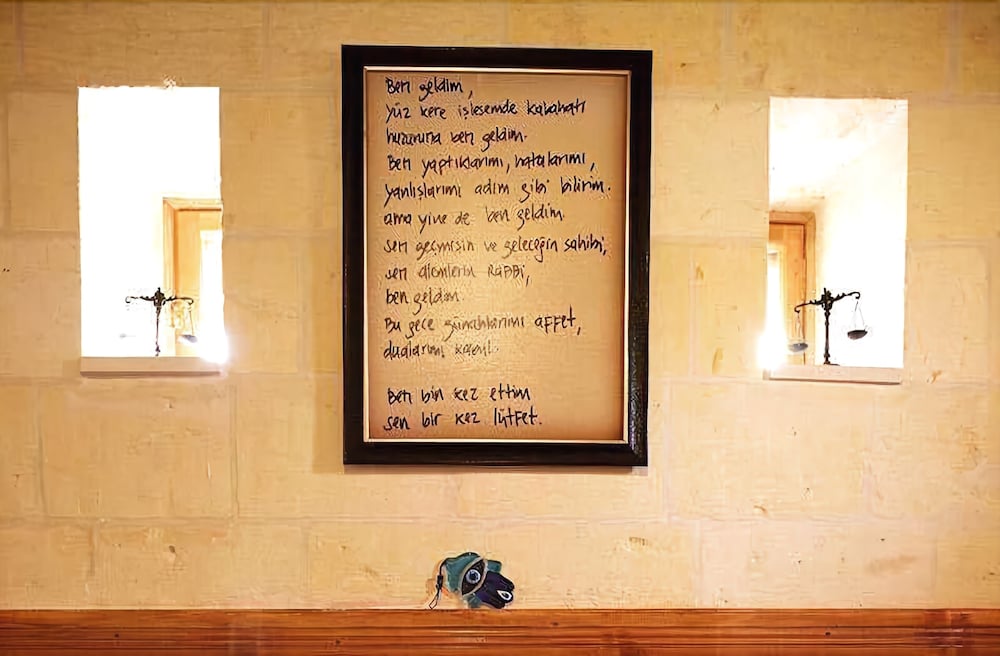 Ben geldim,
yüz kere işlesemde kabahati
huzuruna ben geldim.
Ben yaptıklarımı, hatalarımı,
yanlışlarımı adım gibi bilirim.
ama yine de ben geldim.
sen geçmişin ve geleceğin sahibi,
sen alemlerin RABBi,
ben geldim.
Bu gece günahlarımı affet,
dualarımı kabul.
Ben bin kez ettim
sen bir kez lütfet.